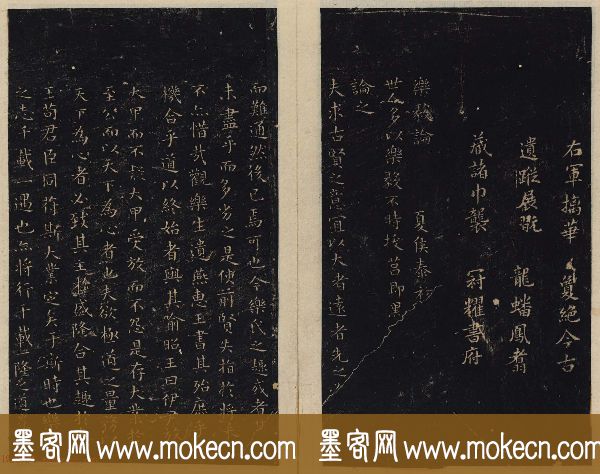 右軍摛華 夐絕今古
遺蹤展翫 龍蟠鳳翥
藏諸巾襲 冠耀書府
樂毅論 夏侯泰初
世人多以樂毅不時拔莒即墨
論之
夫求古賢之意宜以大者遠者先之
而難通然後已焉可也今樂氏之趣或者其
未盡乎而多劣之是使前賢失指於將來
不亦惜哉觀樂生遺燕惠王書其殆庶乎
機合乎道以終始者與其喻昭王曰伊尹放
大甲而不疑大甲受放而不怨是存大業於
至公而以天下為心者也夫欲極道之量務
天下為心者必致其主於盛隆合其趣於
王苟君臣同符斯大業定矣于斯時也樂
之志千載一遇也亦將行千載一隆之道
墨客网 www.mokecn.com
墨客网 www.mokecn.com